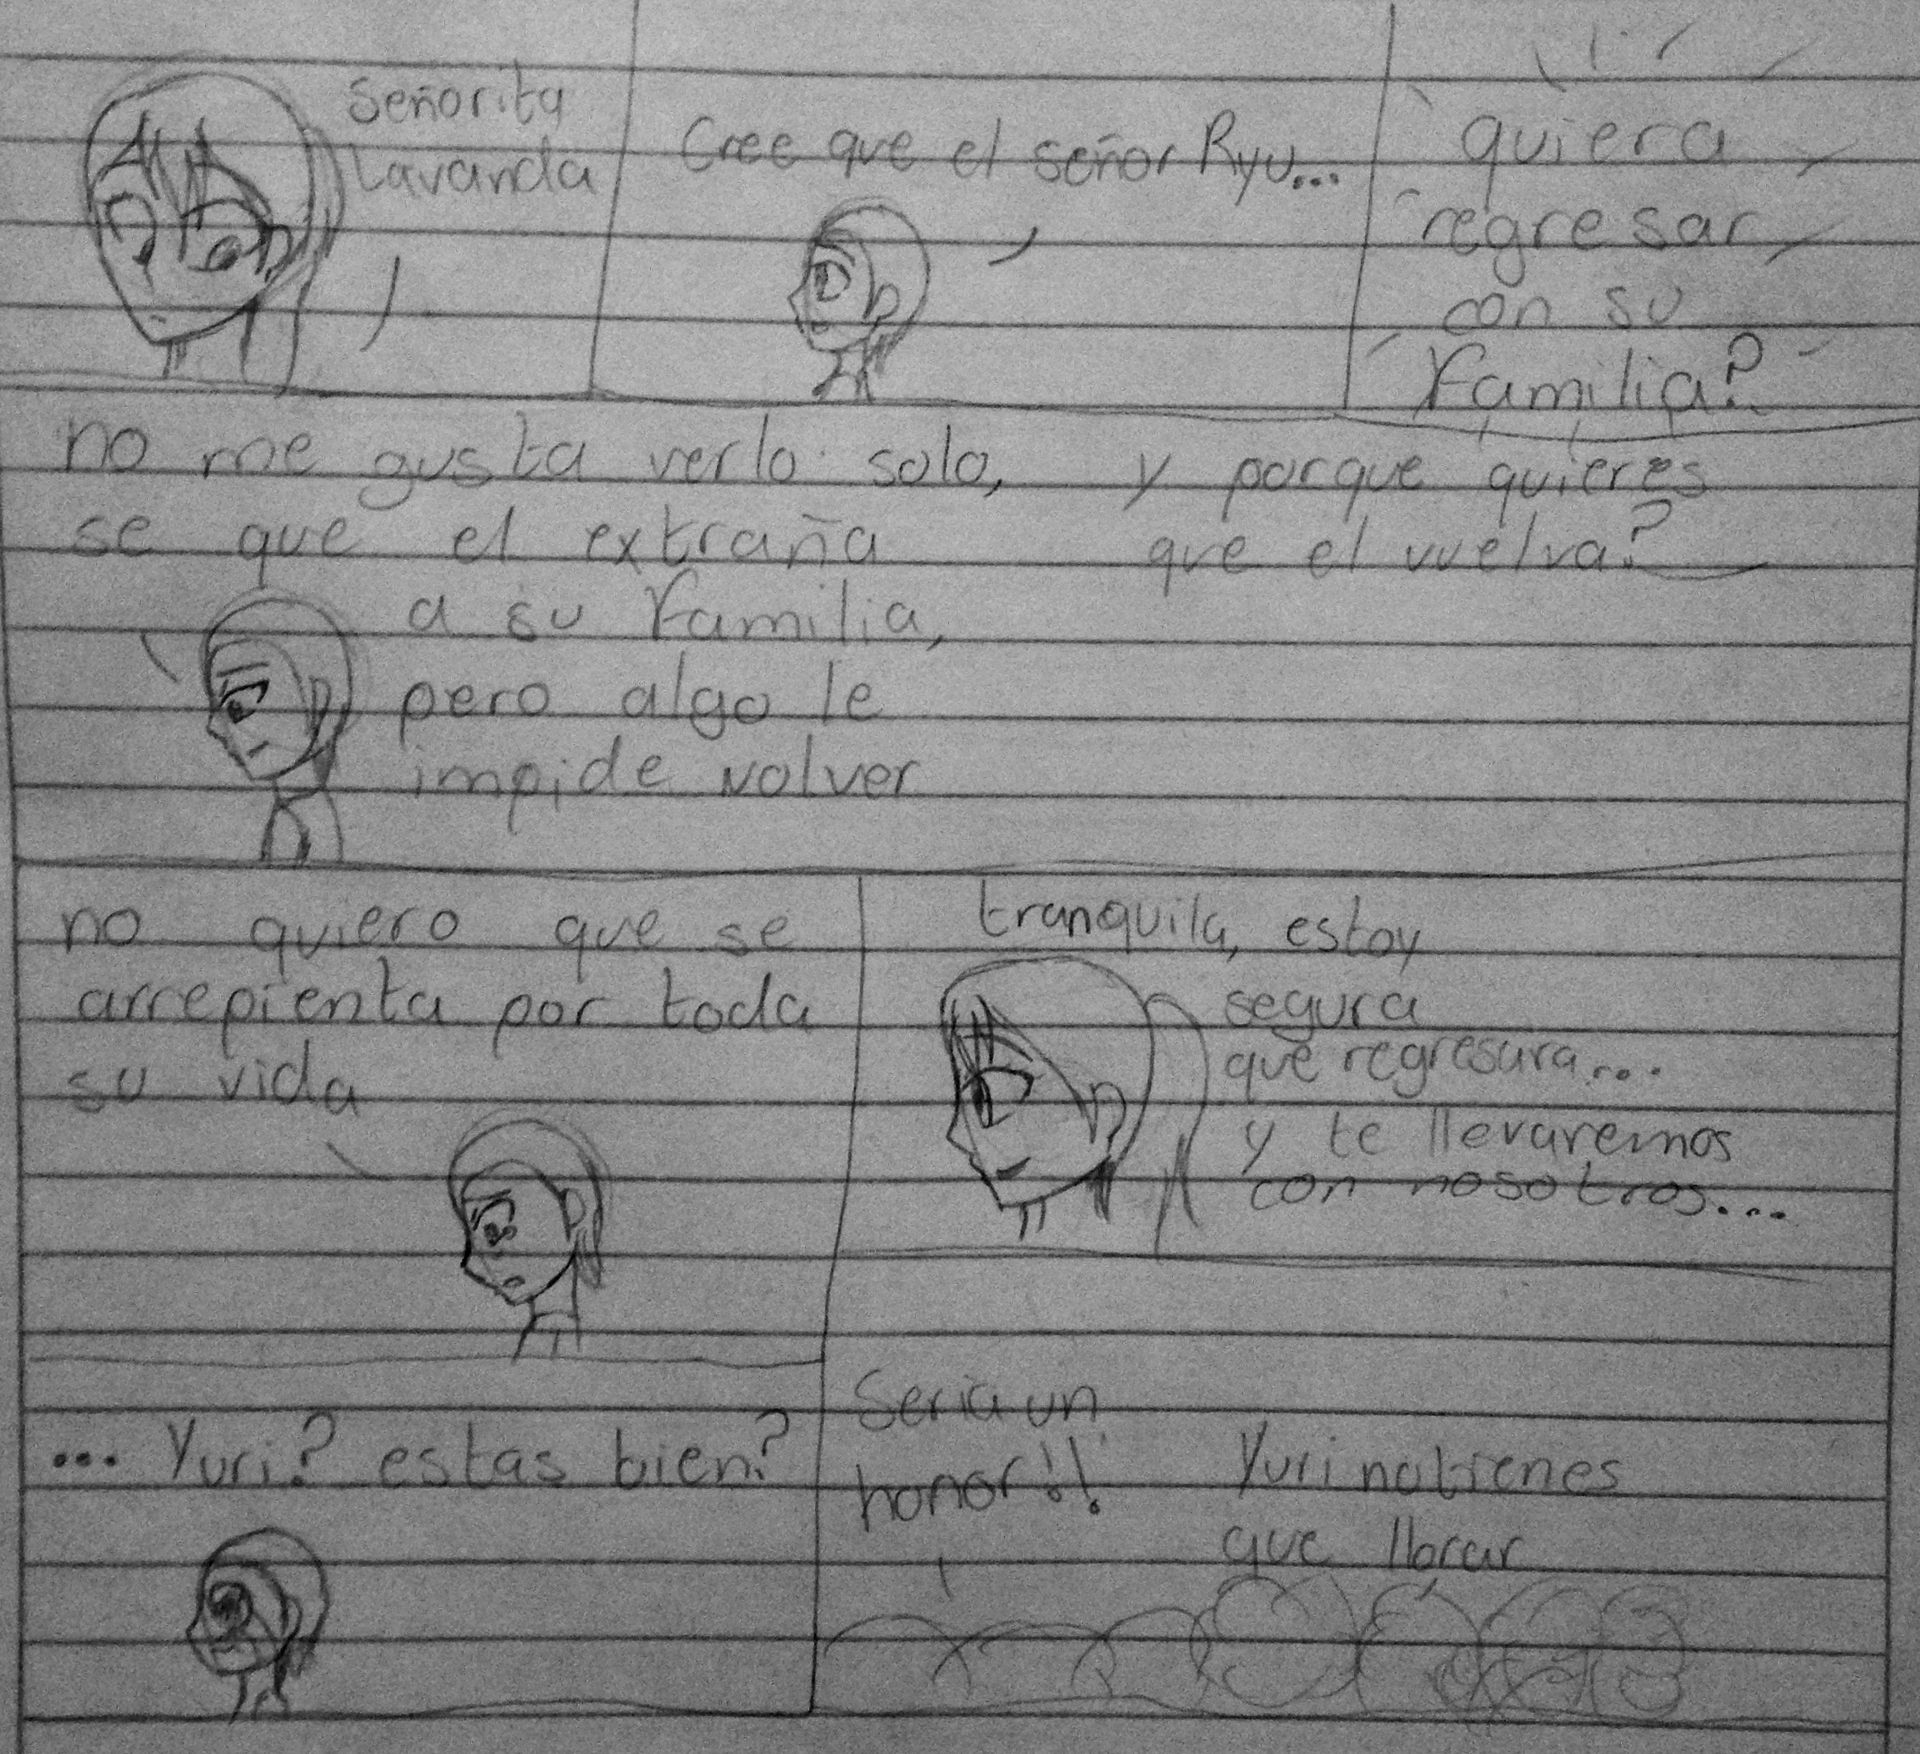 Señorita
Lavanda
Cree que el señor Ryu...
quiera
regresar
con su
Familia?
no me gusta verlo solo,
se que el extraña
a su Familia,
pero algo le
impide volver
y porque quieres
que el vuelva?
no quiero que se
arrepienta por toda
su vida
tranquila, estoy
segura
que regresara...
y te llevaremos
con nosotros...
... Yuri? estas bien?
Seria un
honor!!
Yuri no tienes
que llorar